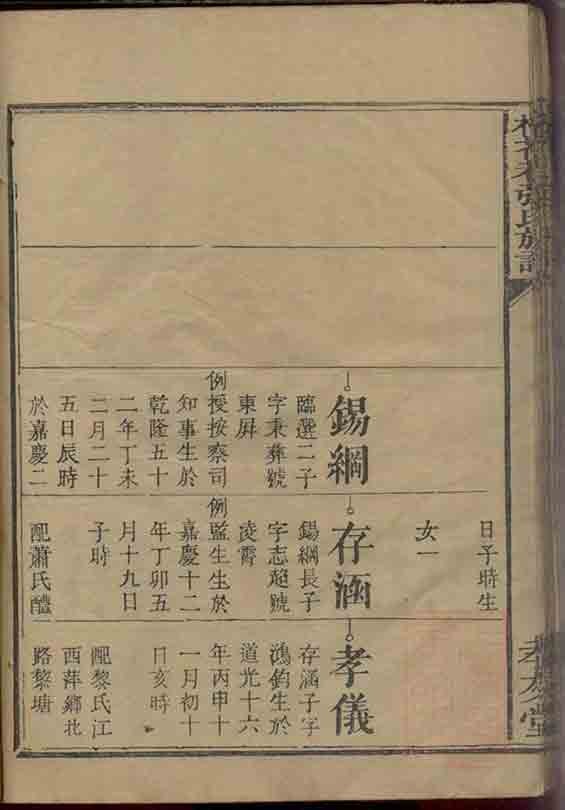 張氏族譜
日子時生
女一
錫綱
臨選二子
字秉彝號
東屏
例授按察司
知事生於
乾隆五十
二年丁未
二月二十
五日辰時
於嘉慶二
存涵
錫綱長子
字志超號
凌霄
例監生生於
嘉慶十二
年丁卯五
月十九日
子時
配蕭氏醴
孝儀
存涵子字
鴻鈞生於
道光十六
年丙申十
一月初十
日亥時
配黎氏江
西萍鄉北
路黎塘
孝友堂